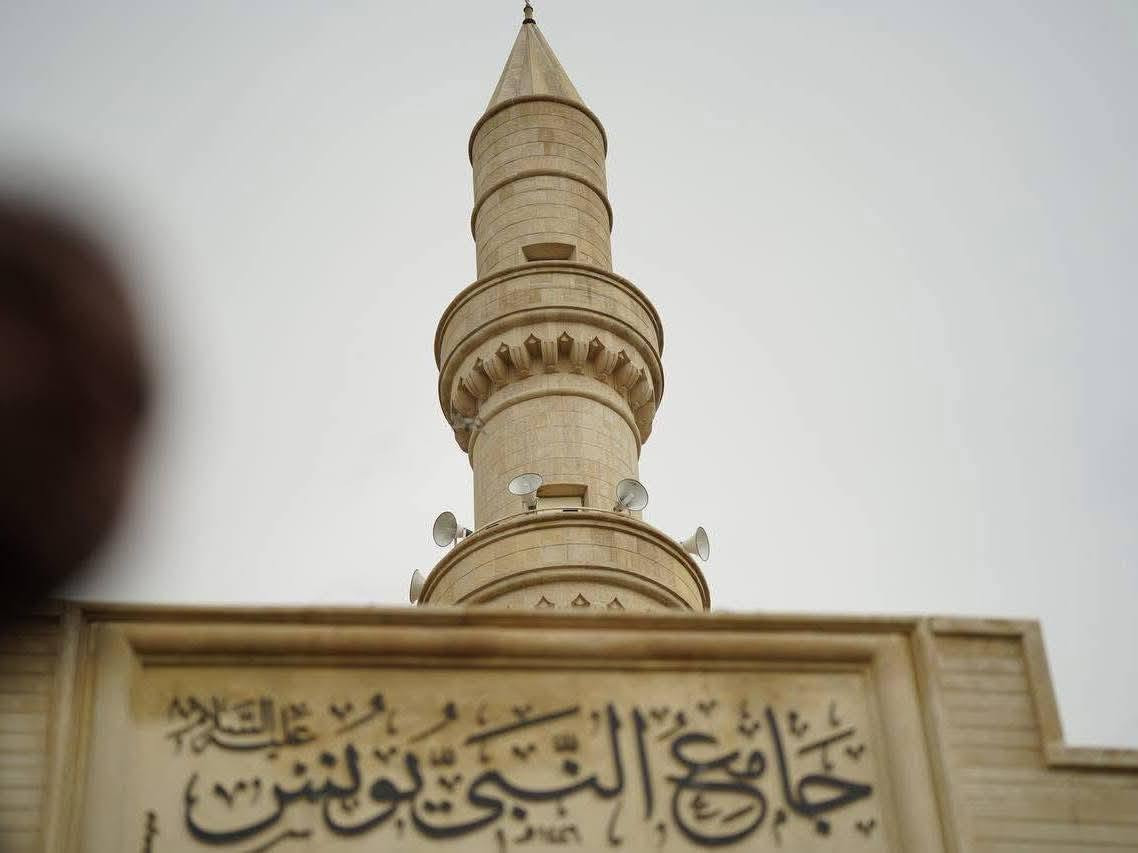 جامع النبي يونس
عليه السلام
١٤٤٦هـ